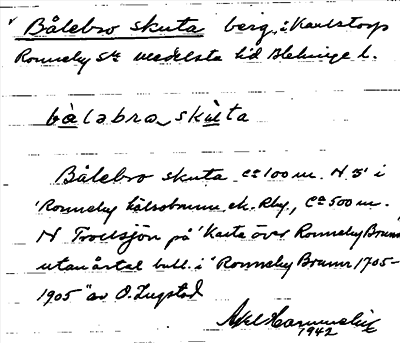 Bålebro skuta berg, i Karlstorp
Ronneby Sn Medelsta hd Blekinge l.
bàləbro skùta
Bålebro skuta ca 100 m. N "5" i
"Ronneby hälsobrunn ek. Rby., ca 500 m.
N Trollsjön på "Karta över Ronneby Brunn
utan årtal i "Ronneby Brunn 1705-
1905" av O. Zugstad
Axel
1942